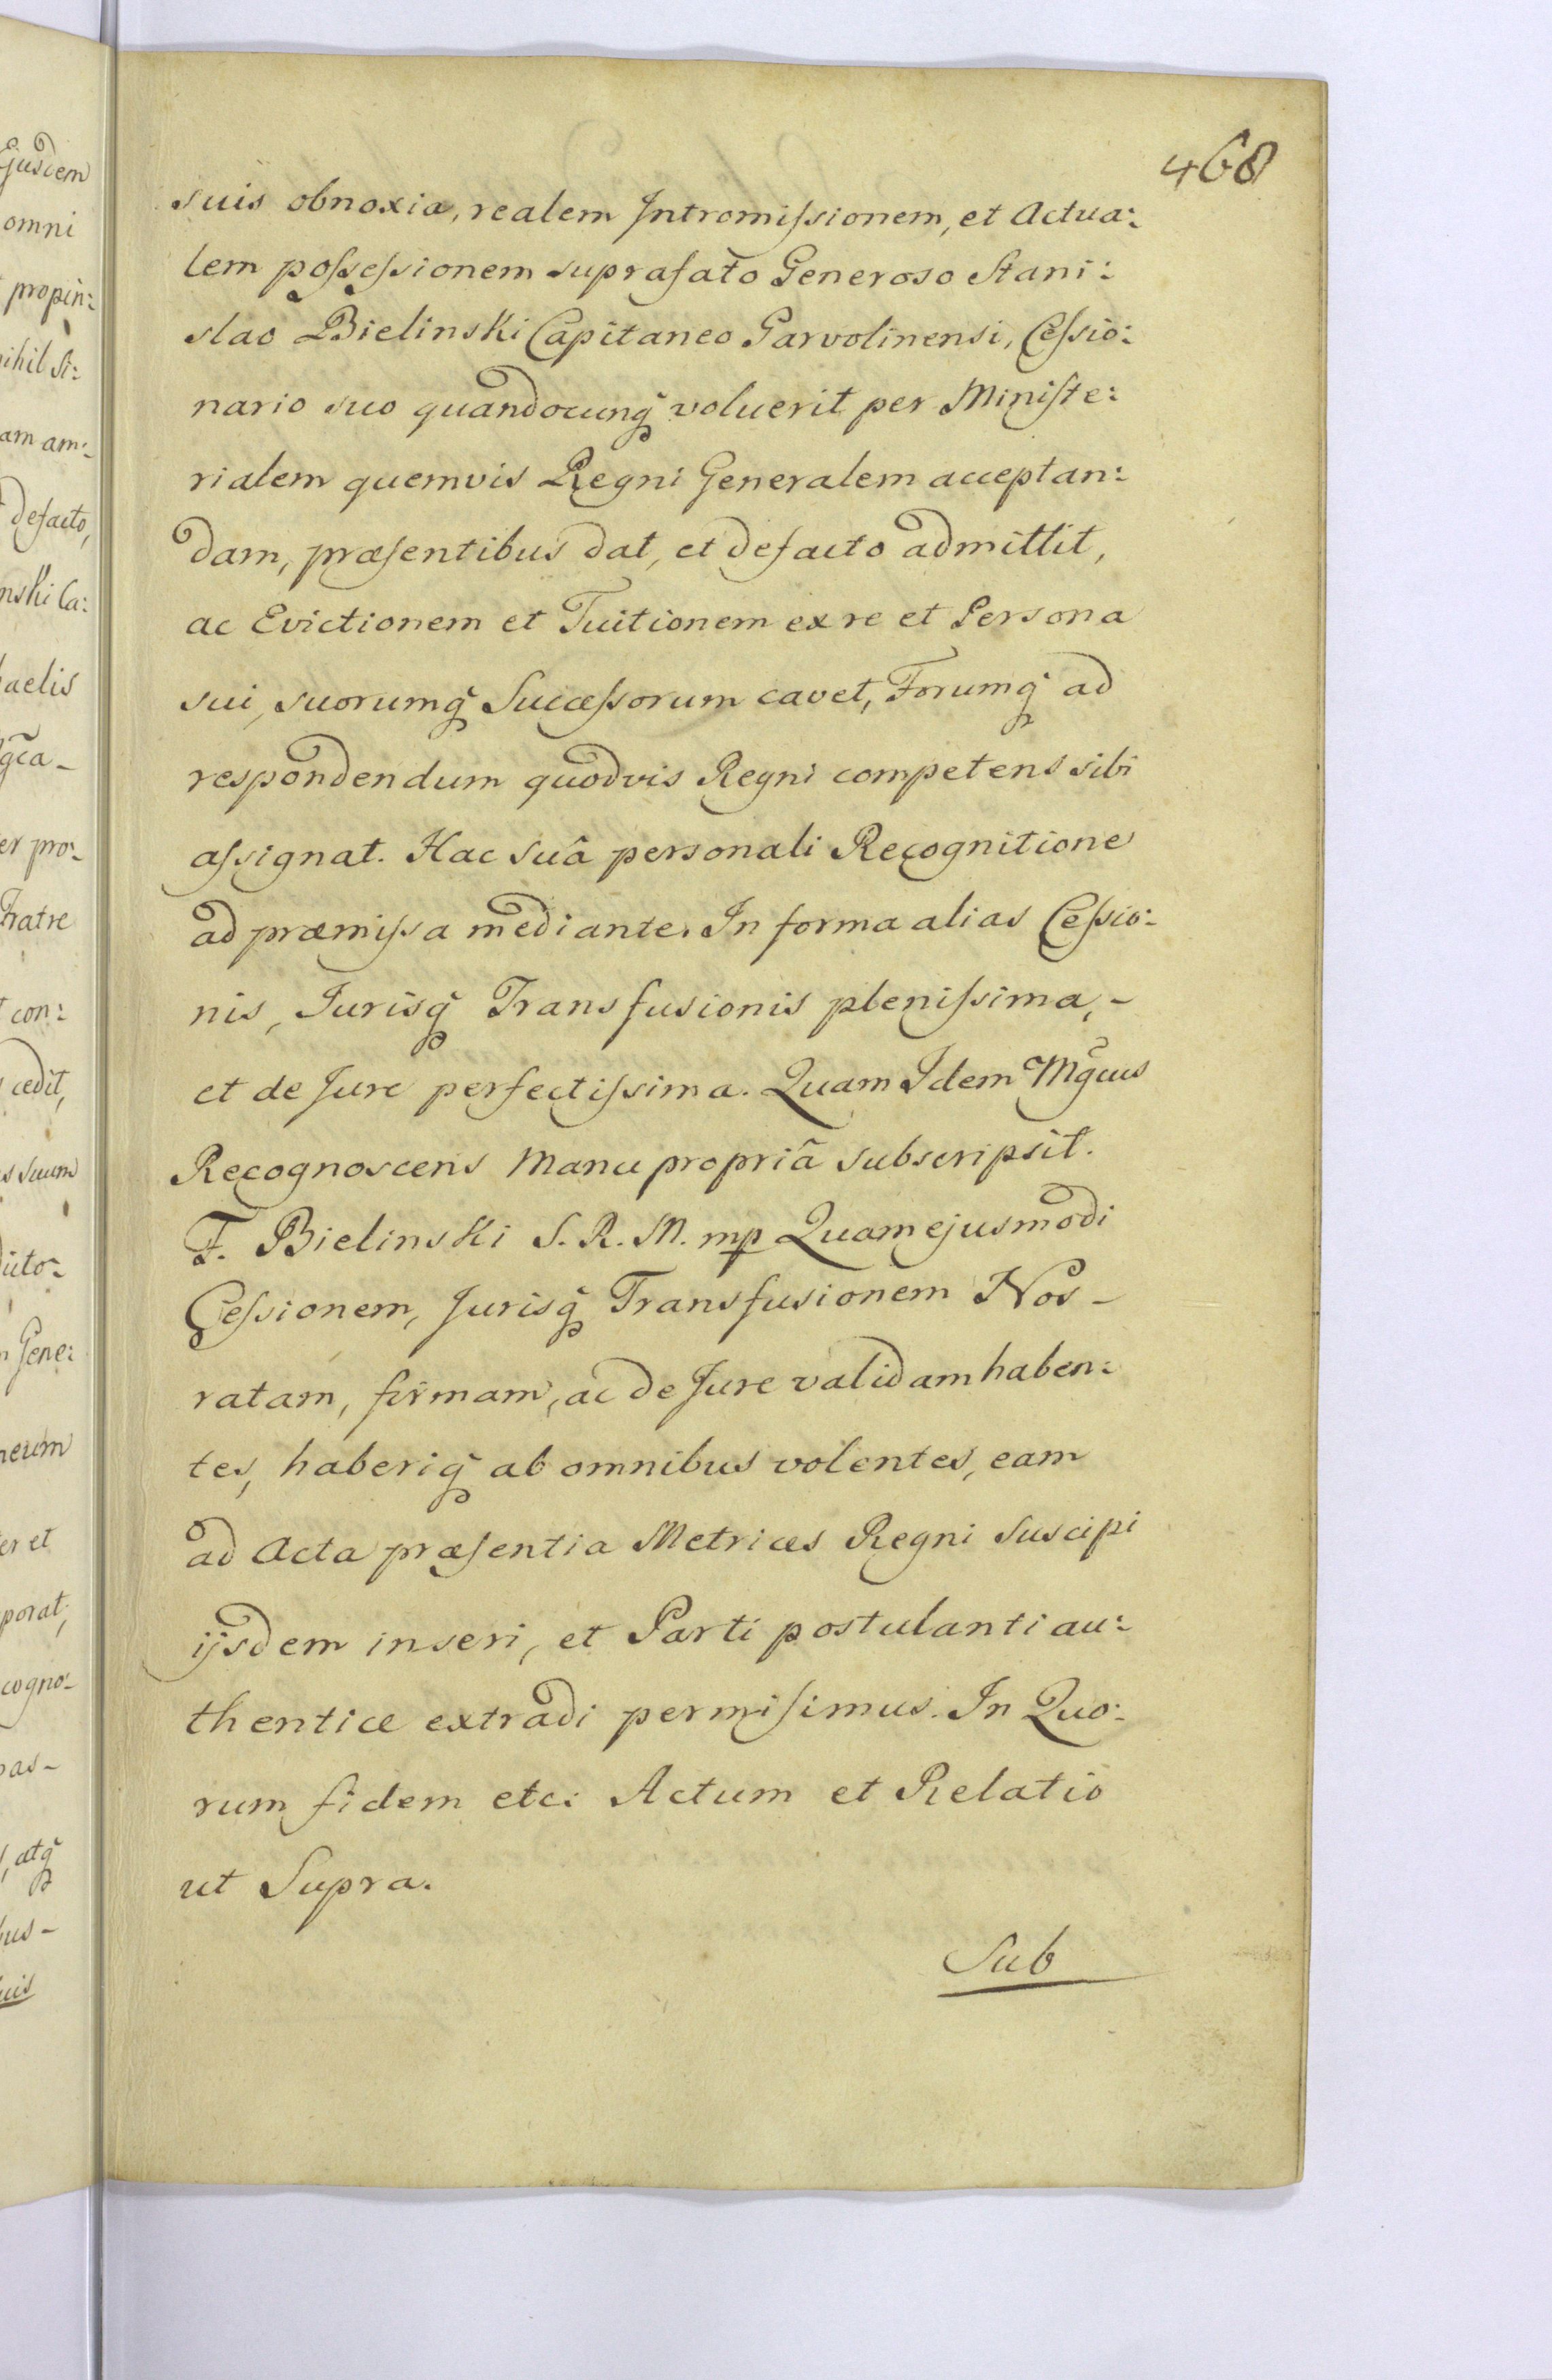 468
suis obnoxia, realem Intromiſsionem, et Actua:
lem poſseſsionem suprafato Generoso Stani:
slao Bielinski Capitaneo Garvolinensi, Ceſsio:
nario suo quandocunq̃ voluerit per Miniſte:
rialem quemvis Regni Generalem acceptan:
dam, præſentibus dat, et defacto admittit,
ac Evictionem et Tuitionem ex re et Persona
sui, suorumq̃ Succeſsorum cavet, Forumq̃ ad
respondendum quodvis Regni competens sibi
aſsignat. Hac suâ personali Recognitione
ad præmiſsa mediante. In forma alias Ceſsio:
nis, Jurisq̃ Transfusionis pleniſsima, -
et de Jure perfectiſsima. Quam Idem Mg̃cus
Recognoscens Manu propriâ subscripsit.
F. Bielinski S. R. M. mp Quam ejusmodi
Ceſsionem, Jurisq̃ Transfusionem Nos -
ratam, firmam, ac de Jure validam haben:
tes, haberiq̃ ab omnibus volentes, eam
ad Acta præſentia Metrices Regni Suscipi
ijsdem inseri, et Parti postulanti au:
thentice extradi permiſimus. In Quo:
rum fidem etc: Actum et Relatio
ut Supra.
Sub